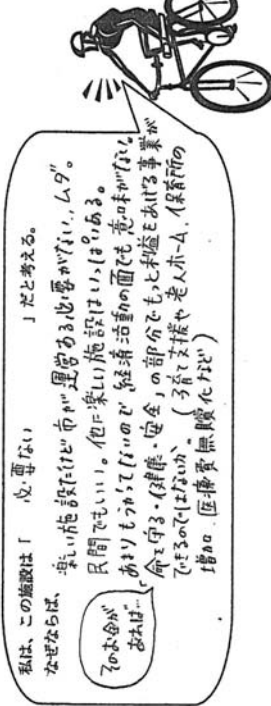 私は、この施設は「 必要ない 」だと考える。
なぜならば、
楽しい施設だけど市が運営ある必要がない。ムダ。
民間でもいい。他に楽しい施設はいっぱいある。
あまりもうかってないので経済活動の面でも意味がない。
そのお金があれば…
命を守る・健康・安全」の部分でもっと利益をあげる事業が
できるのではないか。(子育て支援や老人ホーム、保育所の
増加、医療費無償化など)